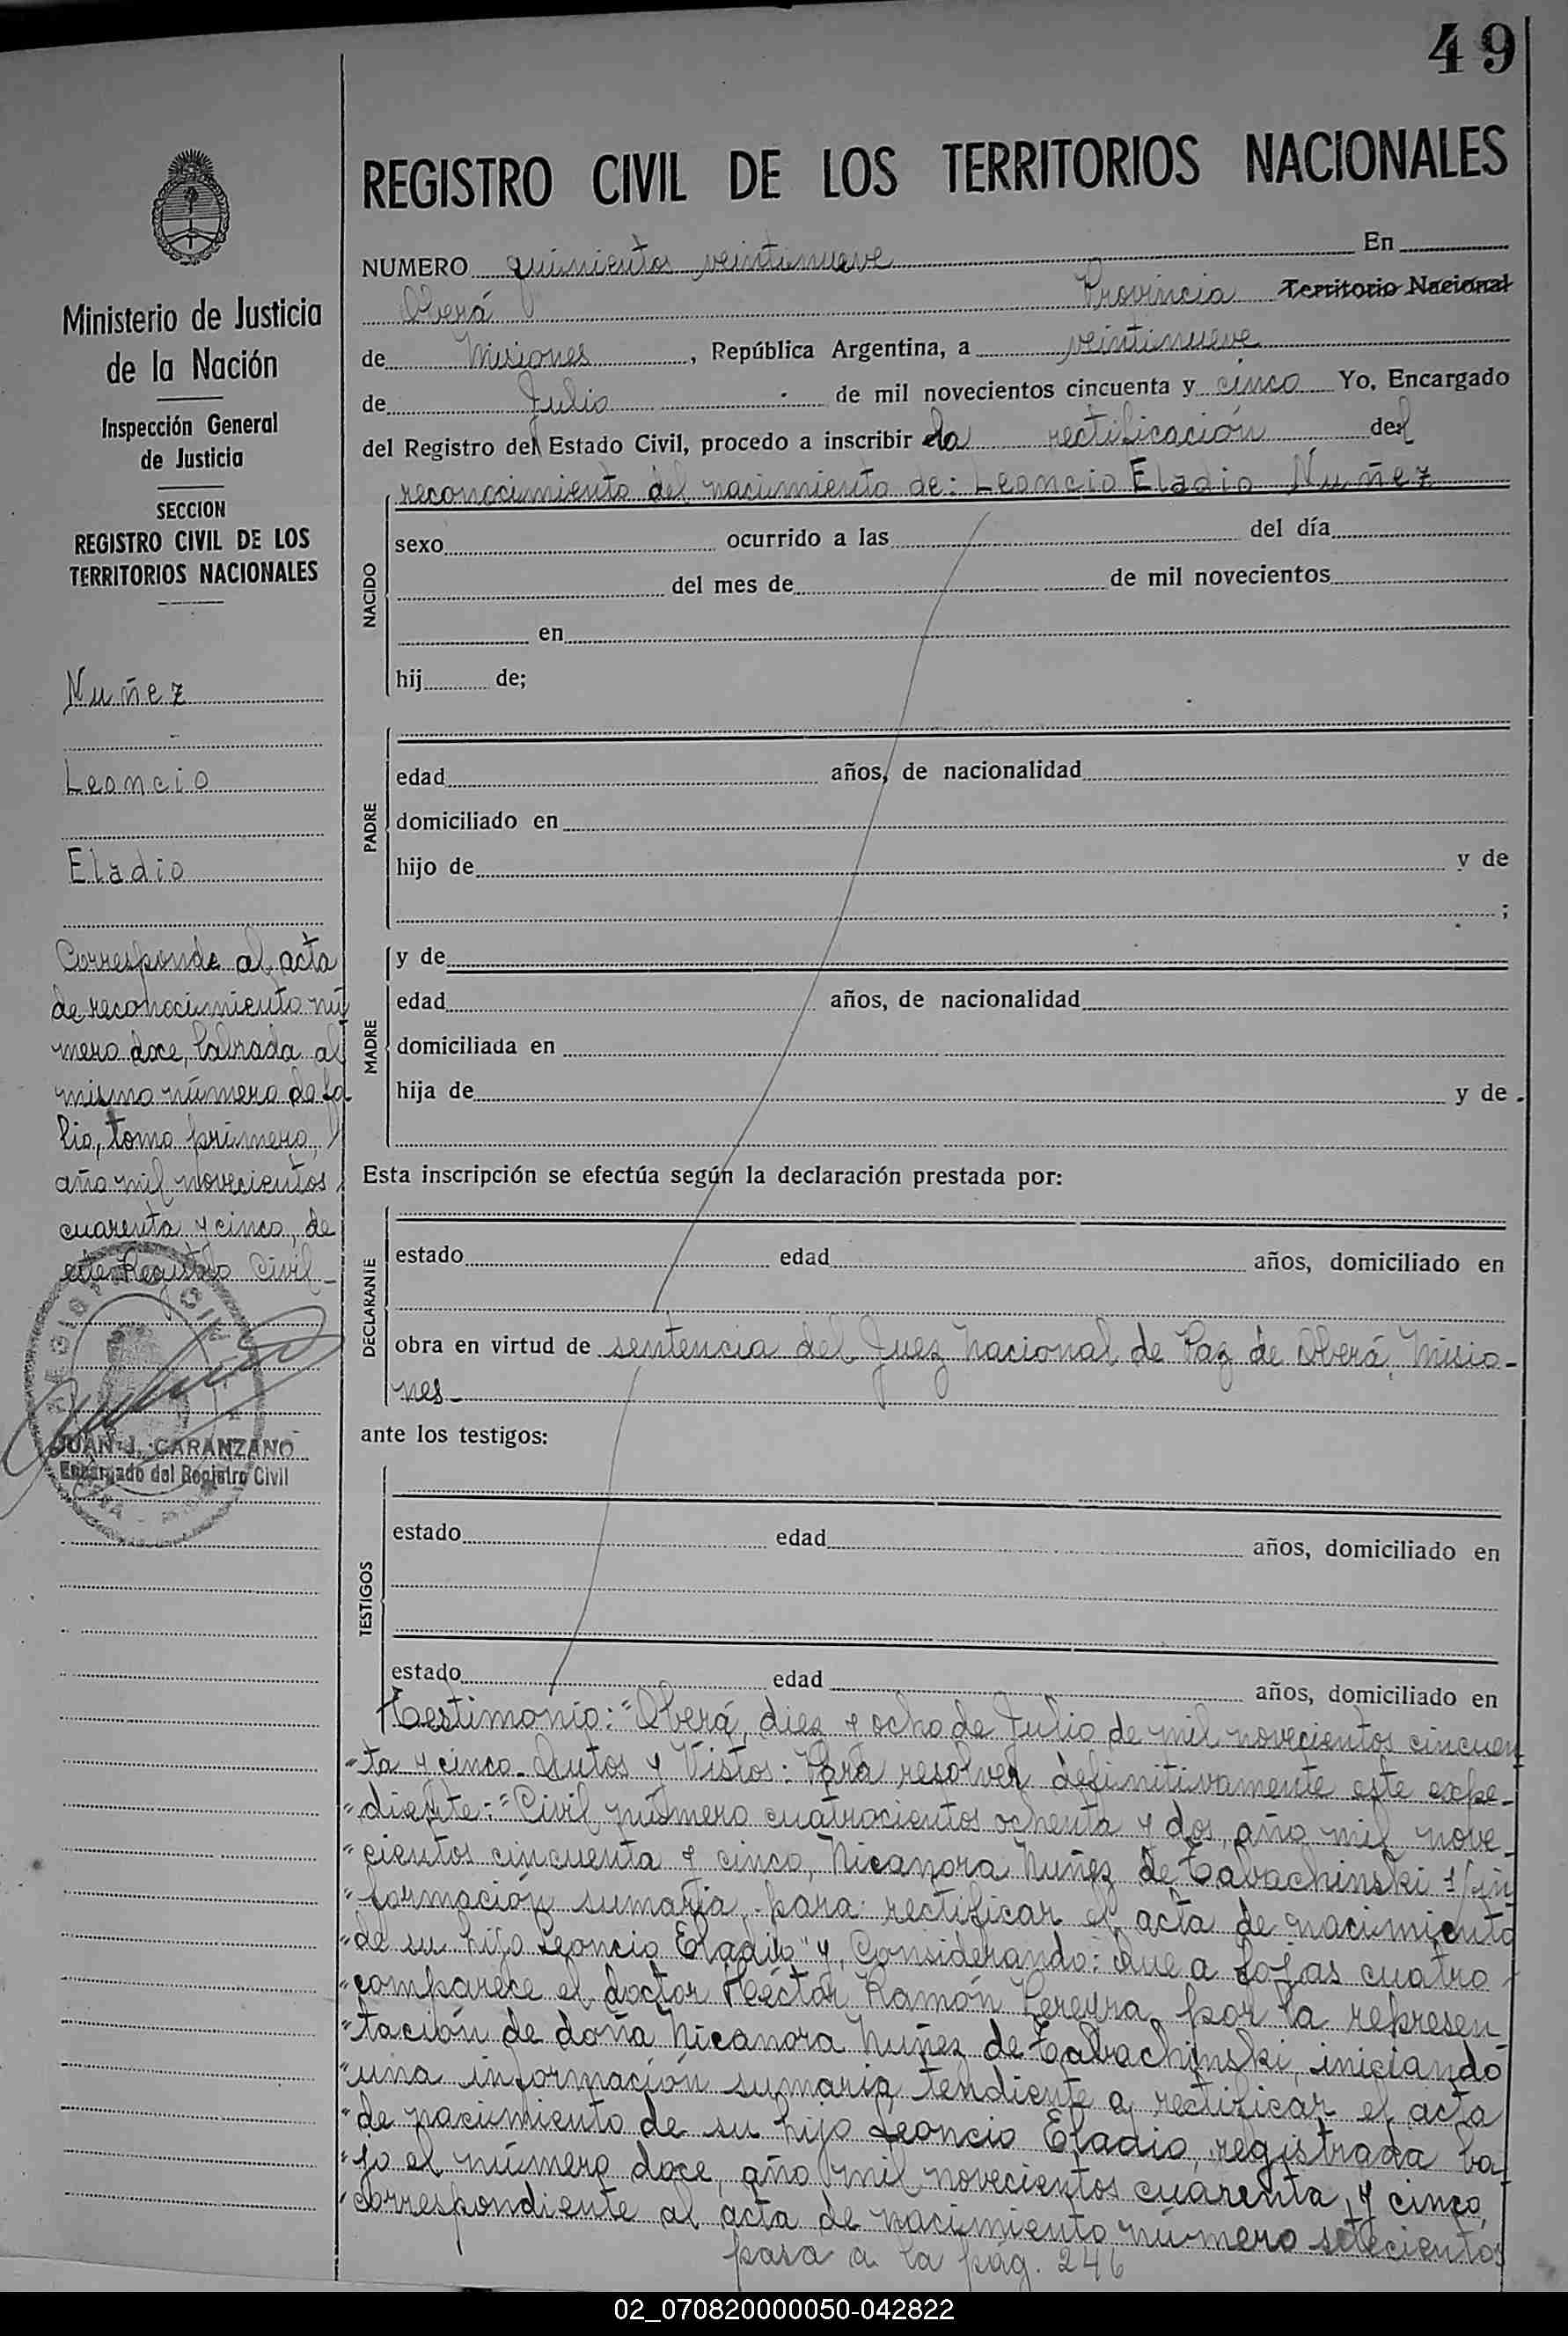 49
REGISTRO CIVIL DE LOS TERRITORIOS NACIONALES
NUMERO quinientos veintinueve En
Oberá Provincia Territorio Nacional
de Misiones, República Argentina, a veintinueve
de Julio de mil novecientos cincuenta y cinco Yo, Encargado
del Registro del Estado Civil, procedo a inscribir la rectificación del
reconocimiento del nacimiento de: Leoncio Eladio Nuñez
NACIDO
sexo ocurrido a las del día
del mes de de mil novecientos
en
hij de;
PADRE
edad años, de nacionalidad
domiciliado en
hijo de y de
;
MADRE
y de
edad años, de nacionalidad
domiciliada en
hija de y de
Esta inscripción se efectúa según la declaración prestada por:
DECLARANTE
estado edad años, domiciliado en
obra en virtud de sentencia del Juez Nacional de Paz de Oberá, Misio-
nes-
ante los testigos:
TESTIGOS
estado edad años, domiciliado en
estado edad años, domiciliado en
Testimonio: "Oberá, diez y ocho de Julio de mil novecientos cincuen
"ta y cinco. Autos y Vistos: Para resolver definitivamente este expe-
"diente:="Civil número cuatrocientos ochenta y dos, año mil nove
"cientos cincuenta y cinco, Nicanora Nuñez de Tabachinski s/in
"formación sumaria para rectificar el acta de nacimiento
"de su hijo Leoncio Eladio" y, Considerando: Que a fojas cuatro
"comparece el doctor Héctor Ramón Pereyra, por la represen
"tación de doña Nicanora Nuñez de Tabachinski, iniciando
"una información sumaria tendiente a rectificar el acta
"de nacimiento de su hijo Leoncio Eladio, registrada ba
"jo el número doce, año mil novecientos cuarenta y cinco,
"correspondiente al acta de nacimiento número setecientos
pasa a la pág. 246
Ministerio de Justicia
de la Nación
Inspección General
de Justicia
SECCION
REGISTRO CIVIL DE LOS
TERRITORIOS NACIONALES
Nuñez
Leoncio
Eladio
Corresponde al acta
de reconocimiento nú
mero doce, labrada al
mismo número de fo
lio, tomo primero,
año mil novecientos
cuarenta y cinco, de
este Registro Civil-
JUAN J. CARANZANO
Encargado del Registro Civil
02_070820000050-042822